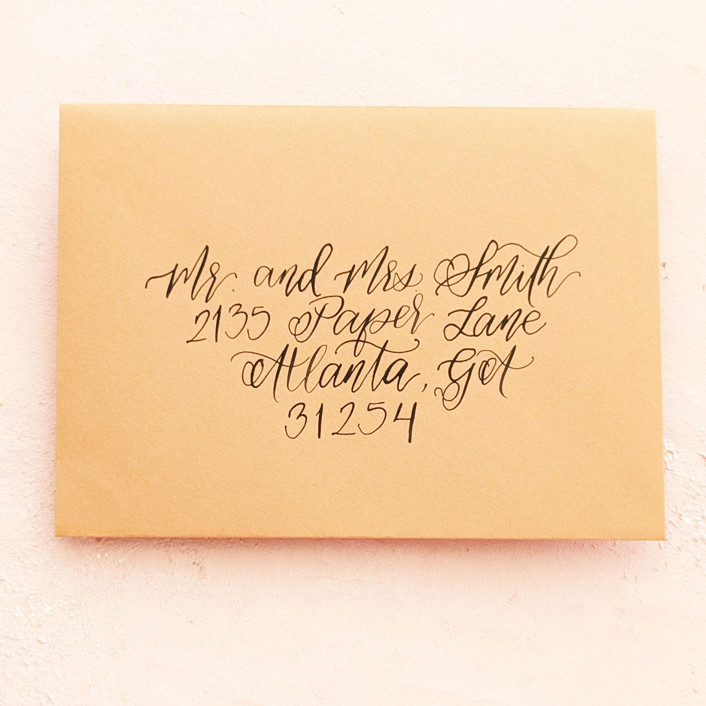 Mr. and Mrs. Smith
2135 Paper Lane
Atlanta, GA
31254